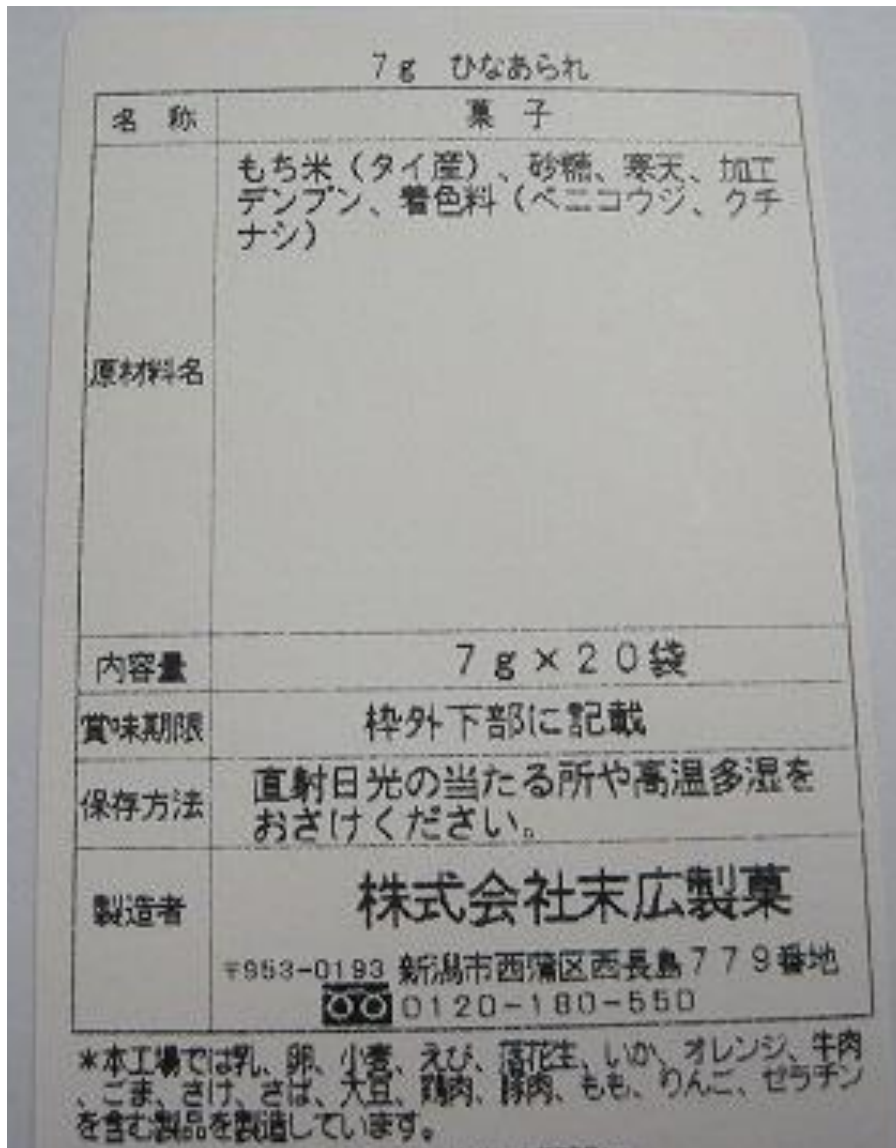 7g ひなあられ
名 称 菓 子
原材料名 もち米（タイ産）、砂糖、寒天、加工
デンプン、着色料（ベニコウジ、クチ
ナシ）
内容量 7g×20袋
賞味期限 枠外下部に記載
保存方法 直射日光の当たる所や高温多湿を
おさけください。
製造者 株式会社末広製菓
〒953-0193 新潟市西蒲区西長島779番地
0120-180-550
*本工場では乳、卵、小麦、えび、落花生、いか、オレンジ、牛肉
、ごま、さけ、さば、大豆、鶏肉、豚肉、もも、りんご、ゼラチン
を含む製品を製造しています。